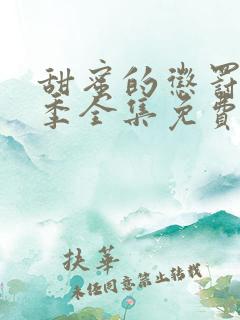 甜蜜的懲罰
季全集免費
扶華
未经同意禁止转载